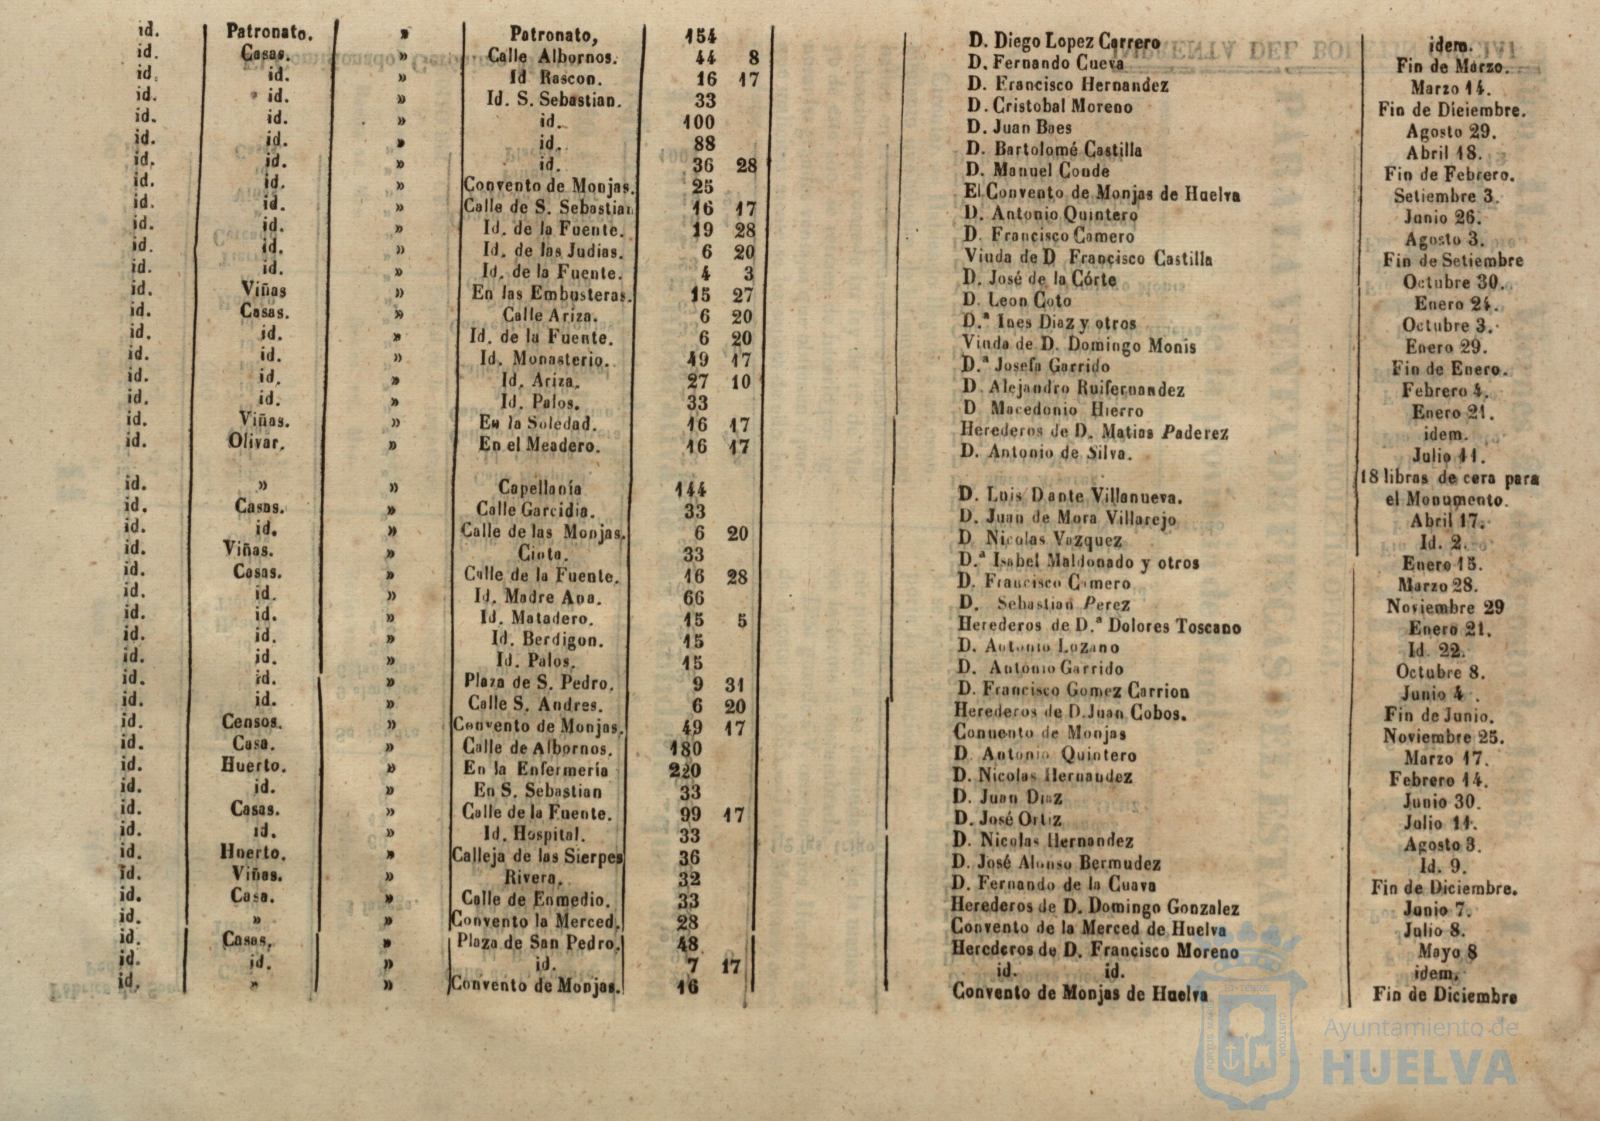 id. Patronato. » Patronato, 154 D. Diego Lopez Carrero idem.
id. Casas. » Calle Albornos. 44 8 D. Fernando Cueva Fin de Marzo.
id. id. » Id Rascon. 16 17 D. Francisco Hernandez Marzo 14.
id. id. » Id. S. Sebastian. 33 D. Cristobal Moreno Fin de Dieiembre.
id. id. » id. 100 D. Juan Baes Agosto 29.
id. id. » id. 88 D. Bartolomé Castilla Abril 18.
id. id. » id. 36 28 D. Manuel Conde Fin de Febrero.
id. id. » Convento de Monjas. 25 El Convento de Monjas de Huelva Setiembre 3.
id. id. » Calle de S. Sebastian 16 17 D. Antonio Quintero Junio 26.
id. id. » Id. de la Fuente. 19 28 D. Francisco Camero Agosto 3.
id. id. » Id. de las Judias. 6 20 Viuda de D Francisco Castilla Fin de Setiembre
id. id. » Id. de la Fuente. 4 3 D. José de la Córte Octubre 30.
id. Viñas » En las Embusteras. 15 27 D. Leon Coto Enero 24.
id. Casas. » Calle Ariza. 6 20 D.ª Ines Diaz y otros Octubre 3.
id. id. » Id. de la Fuente. 6 20 Viuda de D. Domingo Monis Enero 29.
id. id. » Id. Monasterio. 49 17 D.ª Josefa Garrido Fin de Enero.
id. id. » Id. Ariza. 27 10 D. Alejandro Ruifernandez Febrero 4.
id. id. » Id. Palos. 33 D Macedonio Hierro Enero 21.
id. Viñas. » En la Soledad. 16 17 Herederos de D. Matias Paderez idem.
id. Olivar. » En el Meadero. 16 17 D. Antonio de Silva. Julio 11.
id. » » Capellanía 144 D. Luis Dante Villanueva. 18 libras de cera para
el Monumento.
id. Casas. » Calle Garcidia. 33 D. Juan de Mora Villarejo Abril 17.
id. id. » Calle de las Monjas. 6 20 D Nicolas Vazquez Id. 2.
id. Viñas. » Cinta. 33 D.ª Isabel Maldonado y otros Enero 15.
id. Casas. » Calle de la Fuente. 16 28 D. Francisco Camero Marzo 28.
id. id. » Id. Madre Ana. 66 D. Sebastian Perez Noviembre 29
id. id. » Id. Matadero. 15 5 Herederos de D.ª Dolores Toscano Enero 21.
id. id. » Id. Berdigon. 15 D. Antonio Lozano Id. 22.
id. id. » Id. Palos. 15 D. Antonio Garrido Octubre 8.
id. id. » Plaza de S. Pedro. 9 31 D. Francisco Gomez Carrion Junio 4.
id. id. » Calle S. Andres. 6 20 Herederos de D. Juan Cobos. Fin de Junio.
id. Censos. » Convento de Monjas. 49 17 Conuento de Monjas Noviembre 25.
id. Casa. » Calle de Albornos. 180 D. Antonio Quintero Marzo 17.
id. Huerto. » En la Enfermería 220 D. Nicolas Hernandez Febrero 14.
id. id. » En S. Sebastian 33 D. Juan Diaz Junio 30.
id. Casas. » Calle de la Fuente. 99 17 D. José Ortiz Julio 11.
id. id. » Id. Hospital. 33 D. Nicolas Hernandez Agosto 3.
id. Huerto. » Calleja de las Sierpes 36 D. José Alonso Bermudez Id. 9.
id. Viñas. » Rivera. 32 D. Fernando de la Cuava Fin de Diciembre.
id. Casa. » Calle de Enmedio. 33 Herederos de D. Domingo Gonzalez Junio 7.
id. » » Convento la Merced. 28 Convento de la Merced de Huelva Julio 8.
id. Casas. » Plaza de San Pedro. 48 Herederos de D. Francisco Moreno Mayo 8
id. id. » id. 7 17 id. id. idem.
id. » » Convento de Monjas. 16 Convento de Monjas de Huelva Fin de Diciembre
Ayuntamiento de
HUELVA